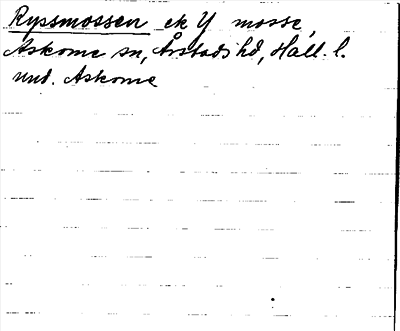 Ryssmossen ek Y mosse
Askome sn, Årstads hd, Hall. l.
und. Askome